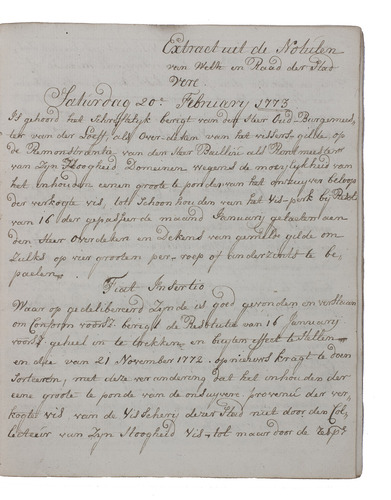 Extract uit de Notulen
van Weth en Raad der Stad
Vere
Saturdag 20: February 1773
Is gehoord het Schriftelijk berigt van den Heer Oud Burgemees,,
ter van der Looff, als Over deken van het vissers gilde, op
de Remonstrantie van den Heer Bailliu als Rentmeester
van Zijn Hoogheid Domeinen wegens de moeijlykheid van
het inhouden eener groote te ponde van het onsuyver beloop
der verkogte vis, tot Schoon houden van het Vis-park bij Resol:
van 16 der gepasseerde maand January gelast aen
den Heer Overdeken en Dekens van gemelte gilde om
Zulks op vier grooten per roep of minder te be,,
paelen.
Fiat Insertio
Waar op gedelibereerd Zijnde is goed gevonden en verstaan
om Conform voorsz. berigt de Resolutie van 16 Januarij
voorsz. geheel in te trekken, en buyten effect te Stellen
en die van 21 November 1772. op nieuws kragt te doen
Sorteeren, met deze verandering dat het inhouden der
eene groote te ponde van de onsuyvere provenue der ver,,
kogte vis van de Visscherij dezer Stad niet door den Col,,
lecteur van Zijn Hoogheid Vis-tol maar door de